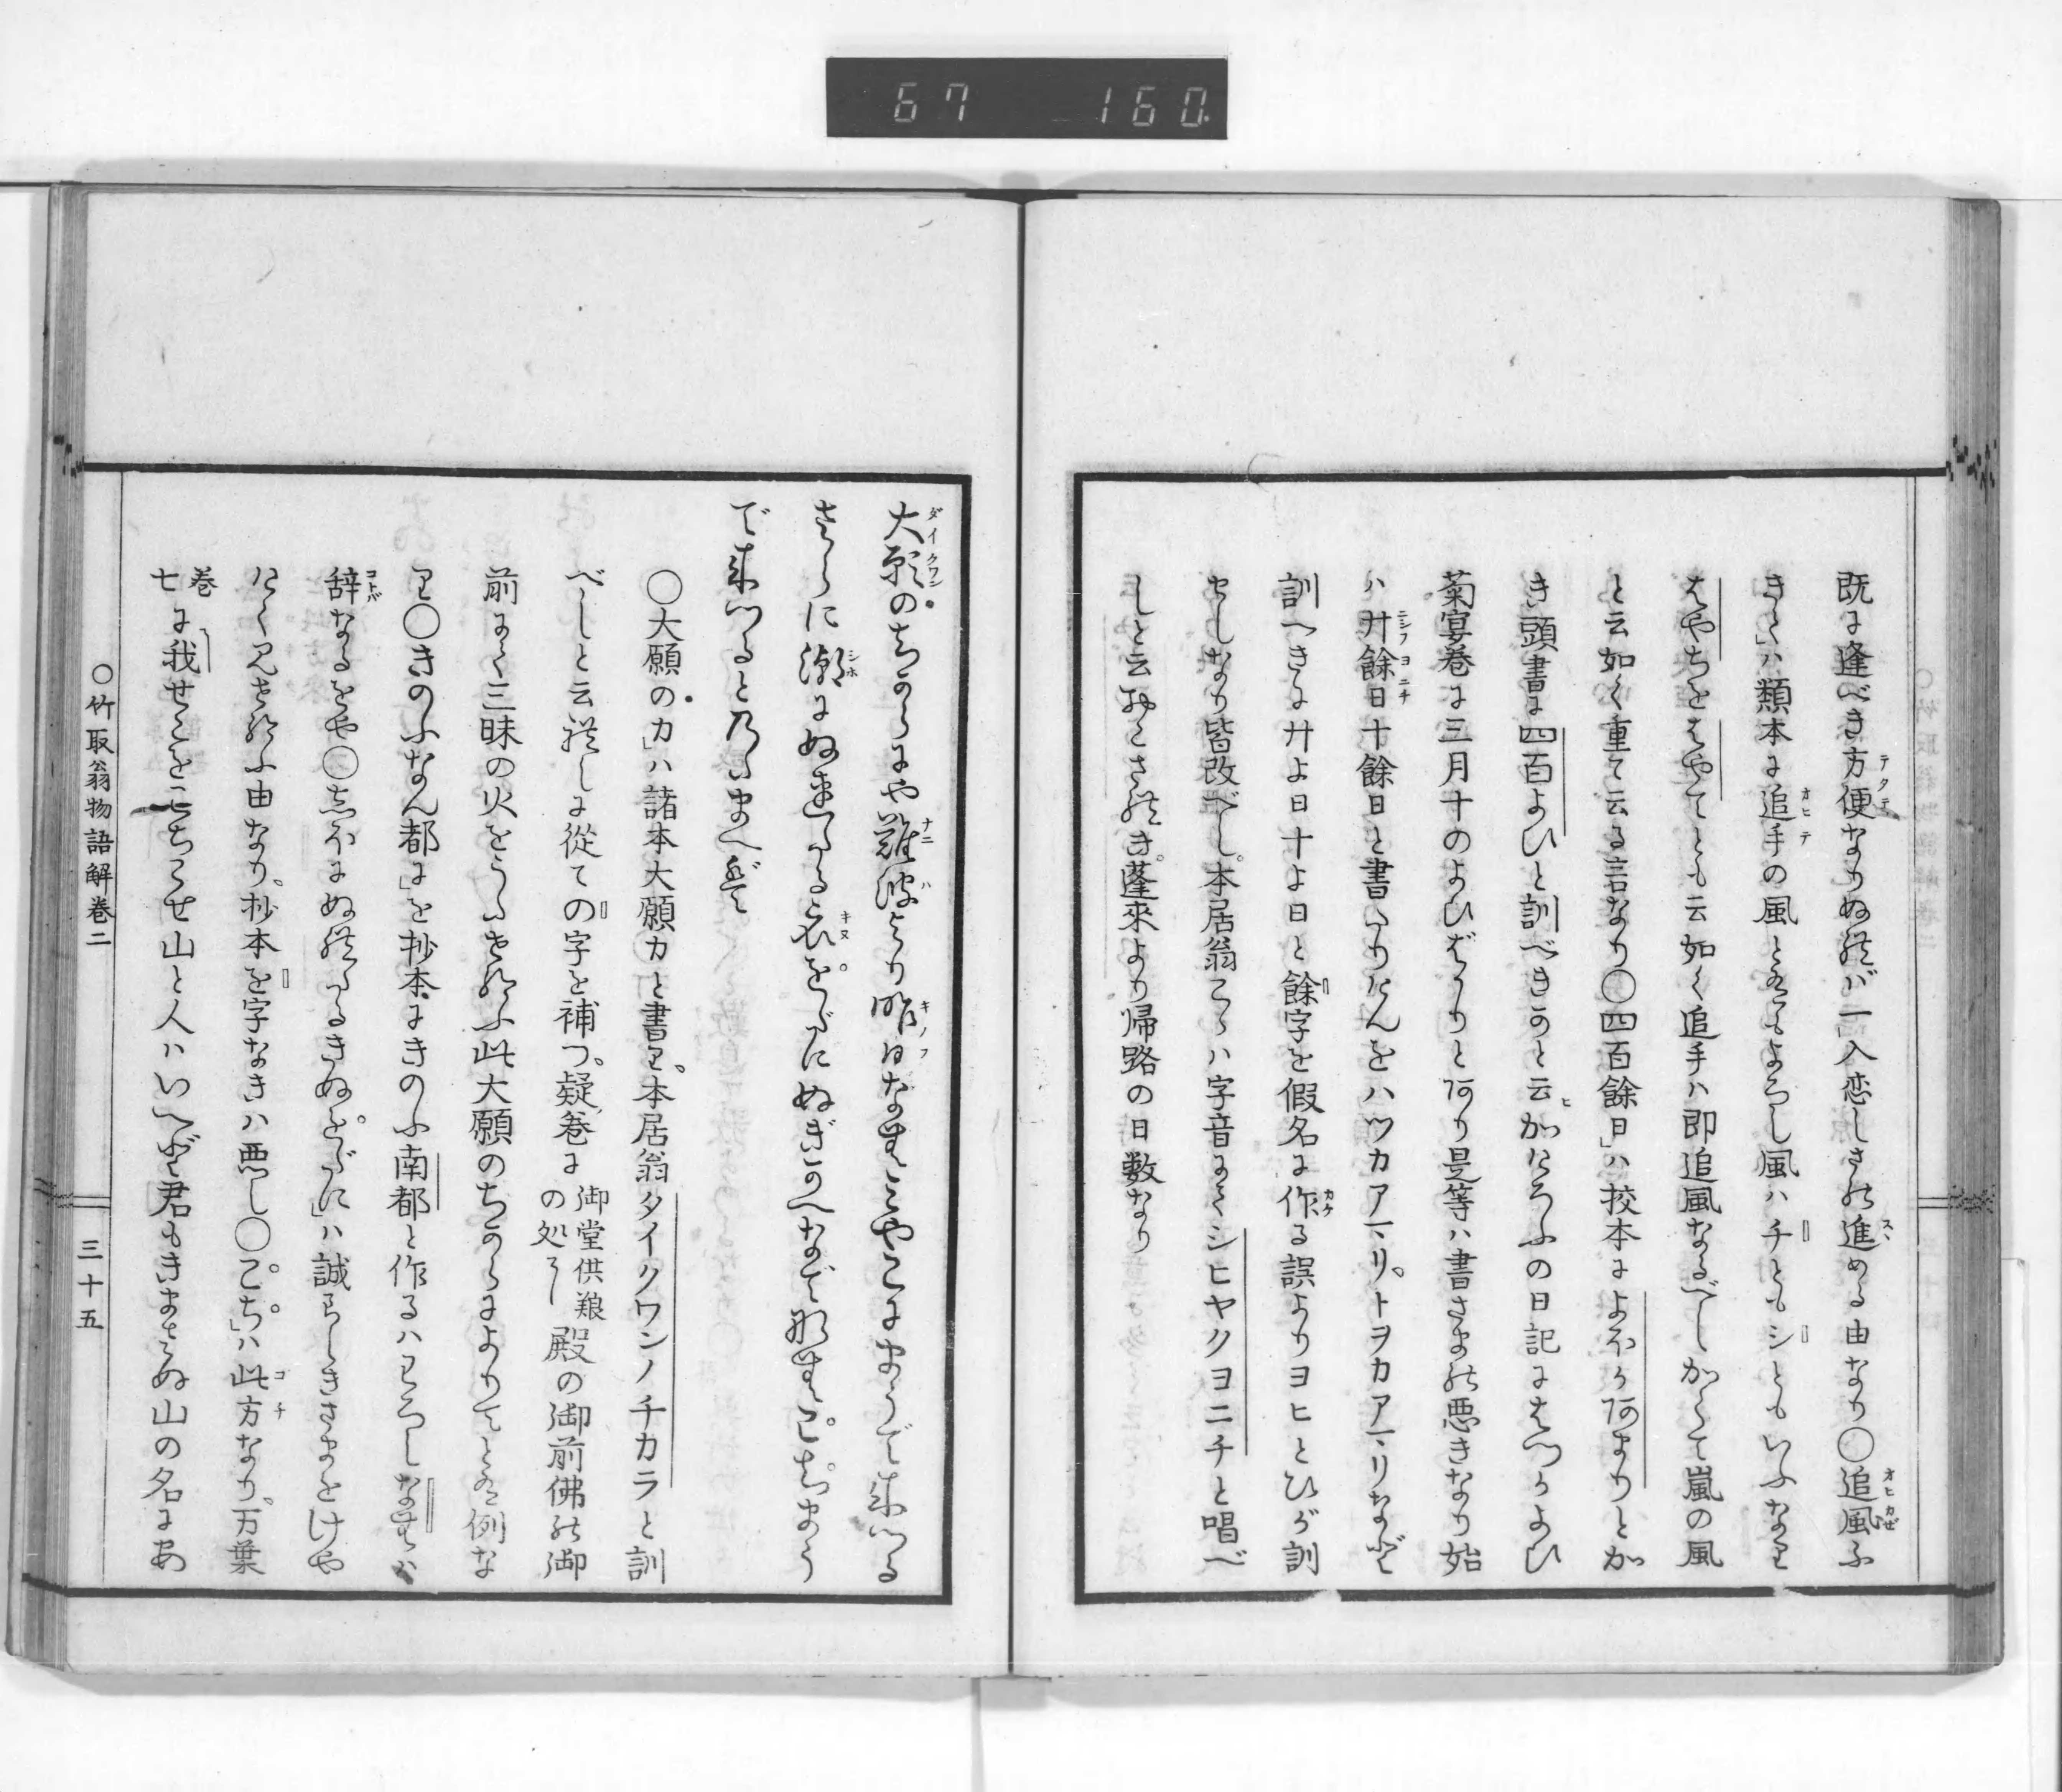 67 160
既に逢べき方便なりぬれバ一入恋しさの進める由なり〇追風ふ
きて」ハ類本に追手の風とあるもよろし風ハチともシともいふなり
はやちをはやてとも云如く追手ハ即追風なるべしかくて嵐の風
と云如く重て云る言なり〇四百餘日」ハ挍本によほか阿まりとか
き頭書に四百よひと訓べきかと云かげろふの日記にはつかよひ
菊宴巻に三月十のよひばかりと阿り是等ハ書さまの悪きなり始
ハ廿餘日十餘日と書たりけんをハツカアマリ。トヲカアマリなど
訓へきに廿よ日十よ日と餘字を假名に作る誤よりヨヒとひが訓
せしなり皆改べし。本居翁こゝハ字音にてシヒヤクヨニチと唱べ
しと云おこされき。蓬來より帰路の日数なり
大願のちからにや難波より昨日なむみやこにまうで来つる
さらに潮にぬれたる衣をだにぬぎかへなで那むこちまう
で来つるとのたまへば
〇大願の力」ハ諸本大願力と書り、本居翁タイクワンノチカラと訓
べしと云れしに從ての字を補つ、疑巻に御堂供粮の処に殿の御前佛の御
前にて三昧の火をうたせ給ふ此大願のちからによりてとある例な
り〇きのふなん都に」を抄本にきのふ南都と作るハわろしなむハ
辞なるをや〇志ほにぬれたるきぬをだに」ハ誠らしきさまをけや
けく見せ給ふ由なり、抄本を字なきハ悪し〇こち」ハ此方なり、万葉
巻七に我せこをこちこせ山と人ハいへど君もきまさぬ山の名にあ
〇竹取翁物語解巻二
三十五